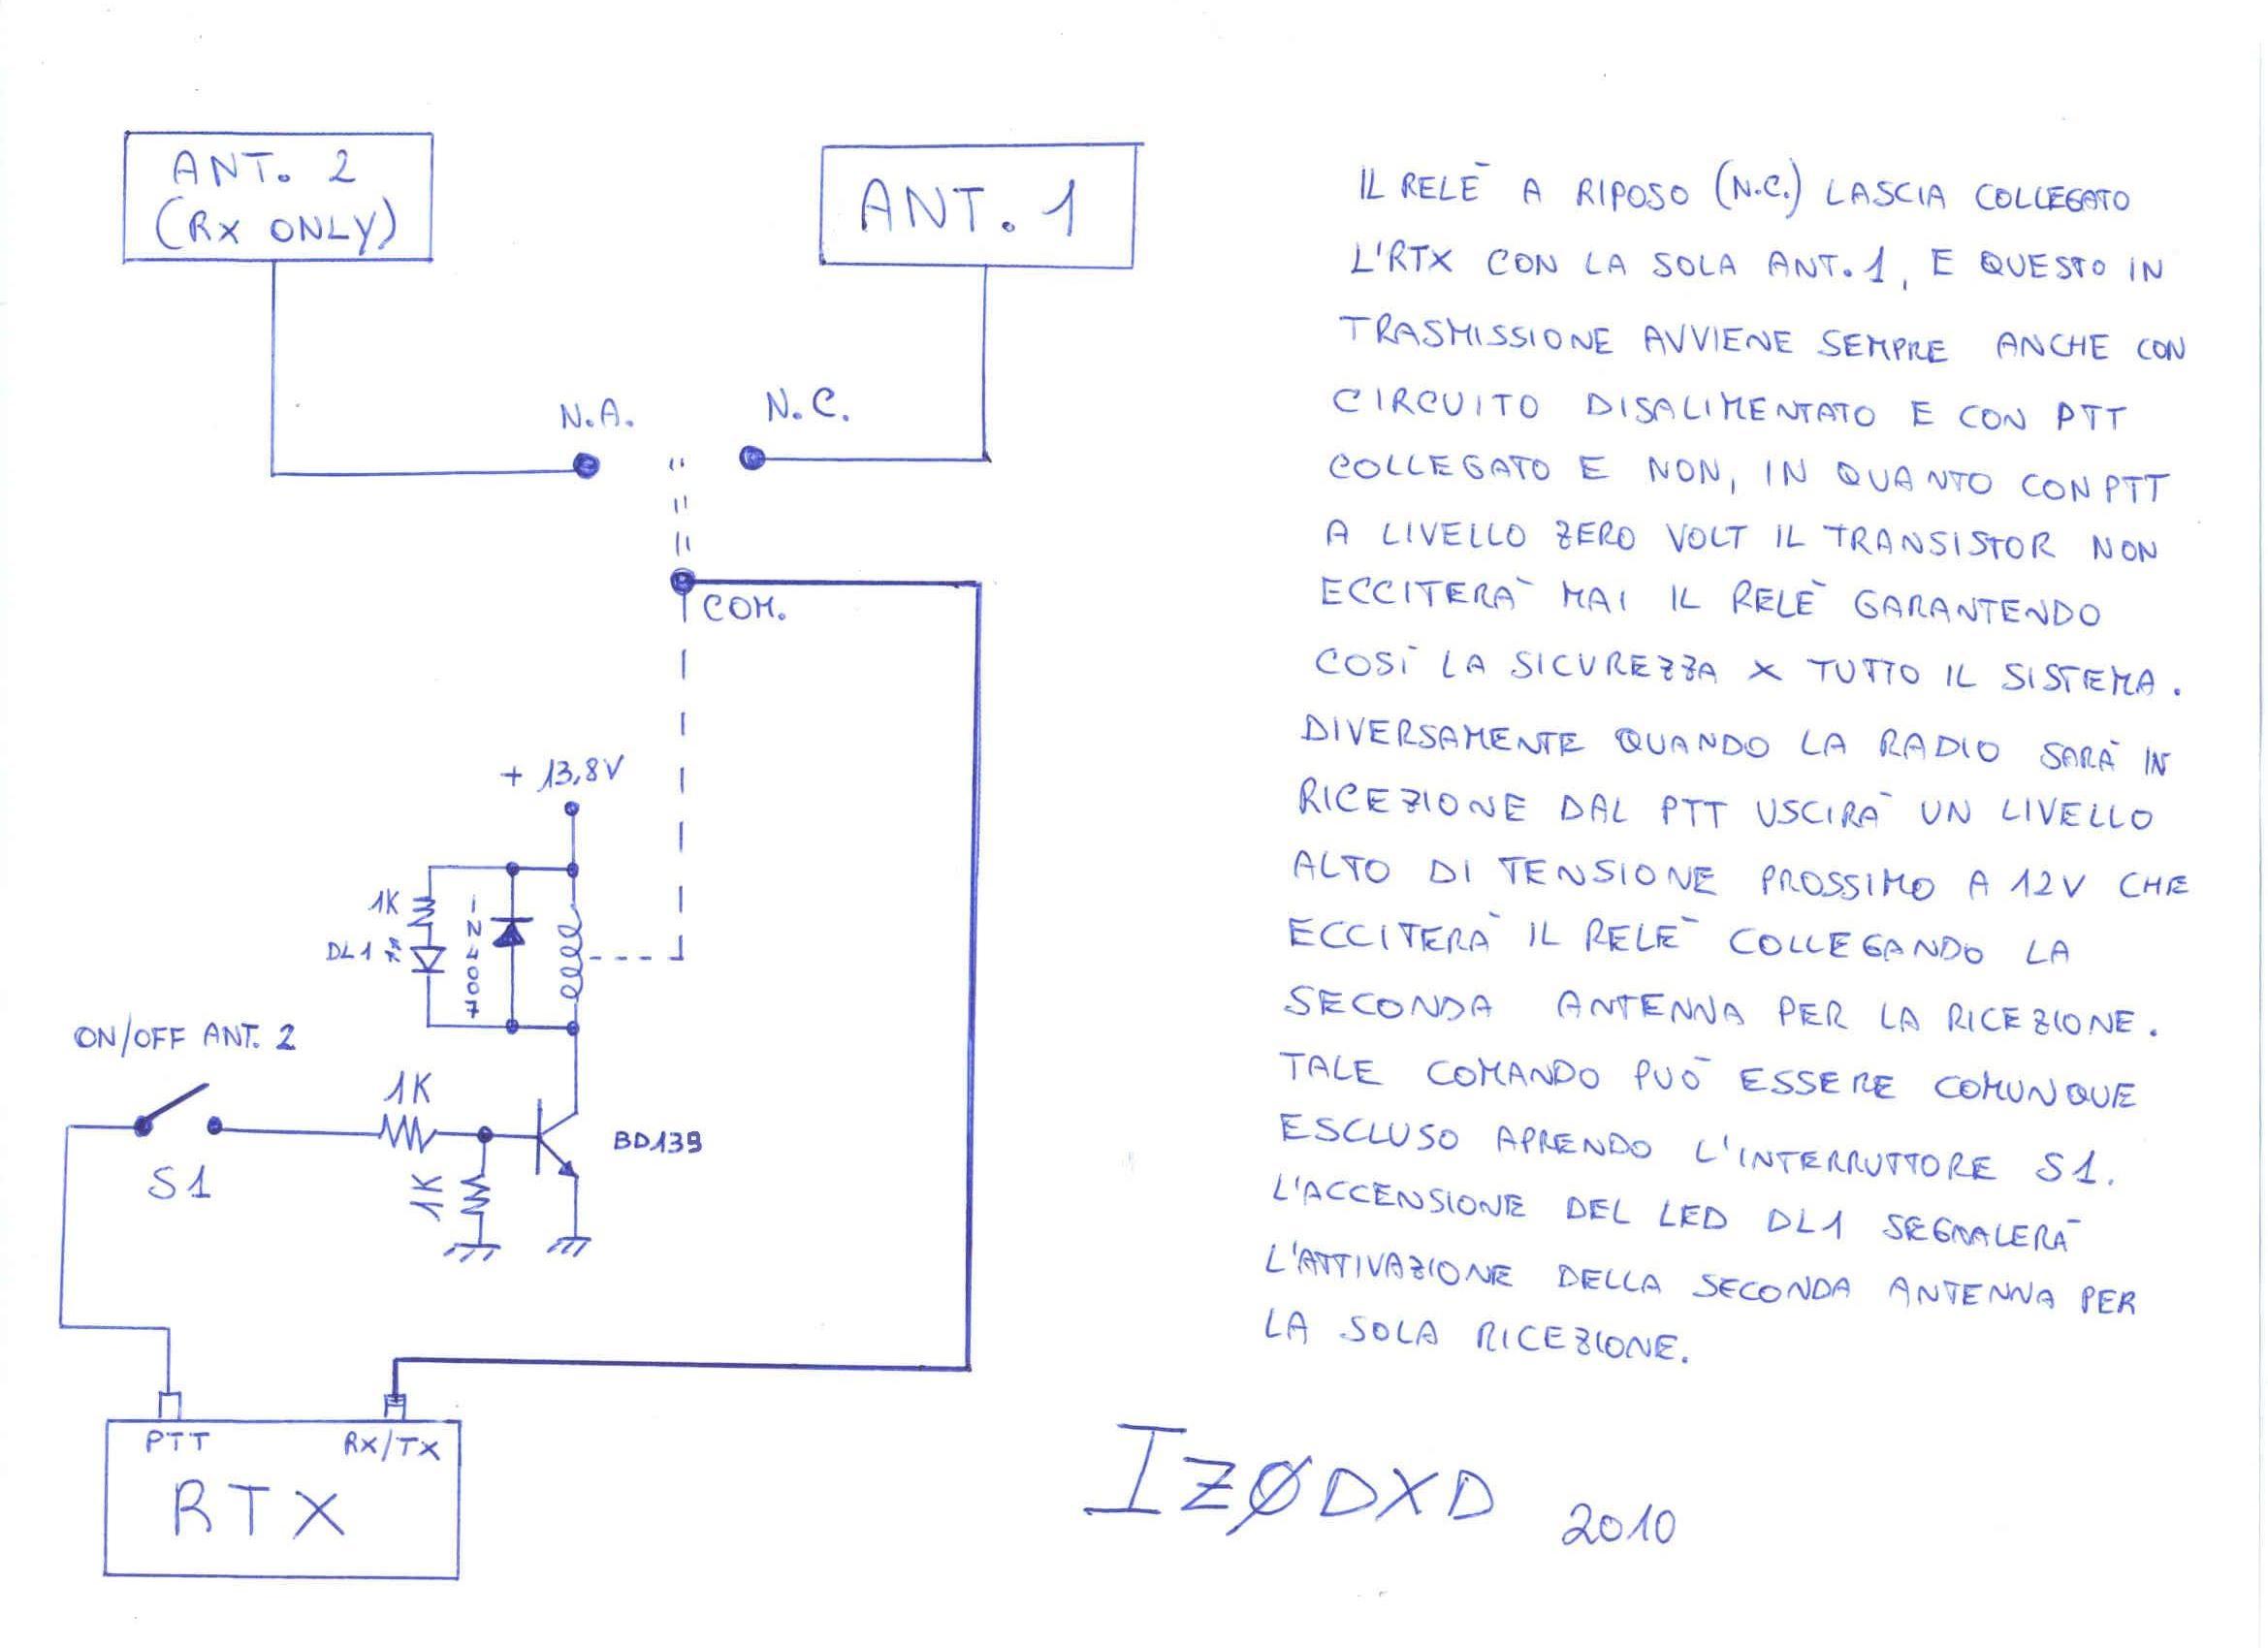 ANT. 2
(RX ONLY)
ANT. 1
N.A.
N.C.
COM.
+ 13,8V
1K
DL1
1N4007
ON/OFF ANT. 2
1K
S1
1K
BD139
PTT
RX/TX
RTX
IL RELÈ A RIPOSO (N.C.) LASCIA COLLEGATO
L'RTX CON LA SOLA ANT.1, E QUESTO IN
TRASMISSIONE AVVIENE SEMPRE ANCHE CON
CIRCUITO DISALIMENTATO E CON PTT
COLLEGATO E NON, IN QUANTO CON PTT
A LIVELLO ZERO VOLT IL TRANSISTOR NON
ECCITERÀ MAI IL RELÈ GARANTENDO
COSÌ LA SICUREZZA X TUTTO IL SISTEMA.
DIVERSAMENTE QUANDO LA RADIO SARÀ IN
RICEZIONE DAL PTT USCIRÀ UN LIVELLO
ALTO DI TENSIONE PROSSIMO A 12V CHE
ECCITERÀ IL RELÈ COLLEGANDO LA
SECONDA ANTENNA PER LA RICEZIONE.
TALE COMANDO PUÒ ESSERE COMUNQUE
ESCLUSO APRENDO L'INTERRUTTORE S1.
L'ACCENSIONE DEL LED DL1 SEGNALERÀ
L'ATTIVAZIONE DELLA SECONDA ANTENNA PER
LA SOLA RICEZIONE.
IZØDXD 2010